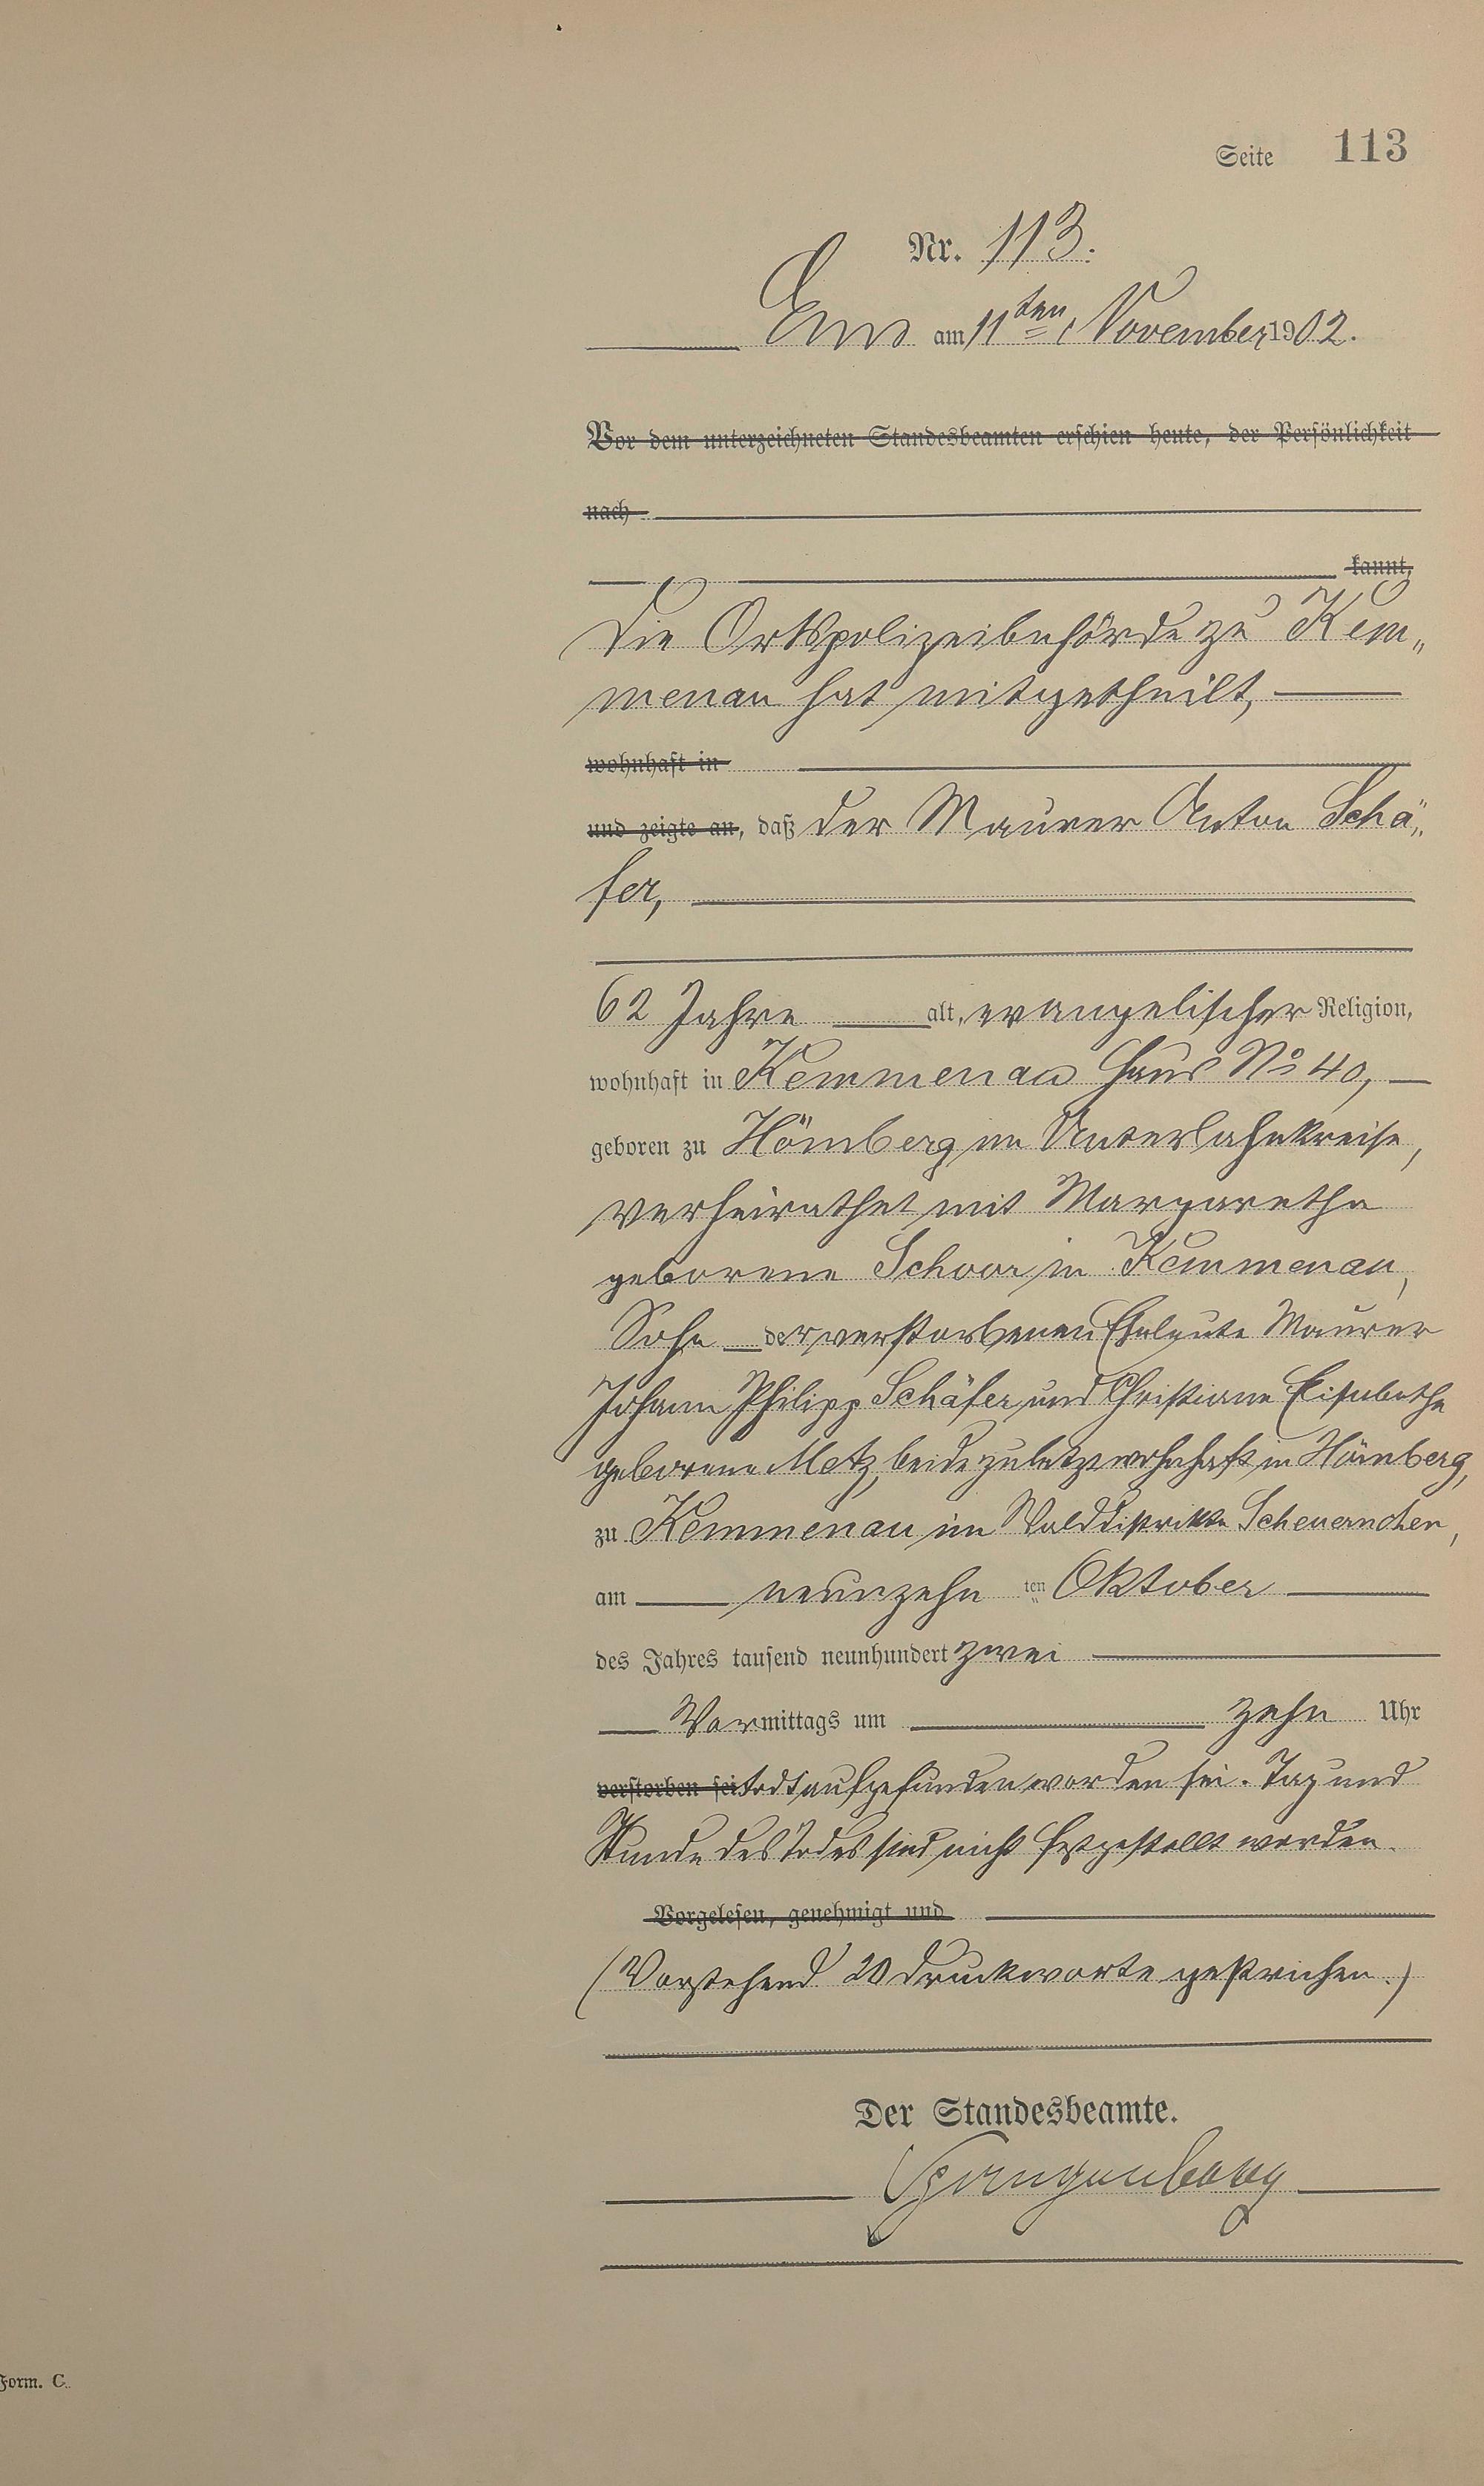 Seite 113
Nr. 113.
Ems am 11ten November 1902.
Vor dem unterzeichneten Standesbeamten erschien heute, der Persönlichkeit
nach
kannt,
Die Ortspolizeibehörde zu Kem„
menau hat mitgetheilt,
wohnhaft in
und zeigte an, daß der Maurer Anton Schä„
fer,
62 Jahre alt, evangelischer Religion,
wohnhaft in Kemmenau Haus No 40,
geboren zu Hömberg im Unterlahnkreise,
verheirathet mit Margaretha
geborene Schoor in Kemmenau,
Sohn der verstorbenen Eheleute Maurer
Johann Philipp Schäfer und Christiane Elisabethe
geborene Metz, beide zuletzt wohnhaft in Hömberg,
zu Kemmenau im Walddistrikte Scheuernchen,
am neunzehn ten Oktober
des Jahres tausend neunhundert zwei
Vormittags um zehn Uhr
verstorben sei todt aufgefunden worden sei. Tag und
Stunde des Todes sind nicht festgestellt worden.
Vorgelesen, genehmigt und
(Vorstehend 20 Druckworte gestrichen.)
Der Standesbeamte.
Form. C.